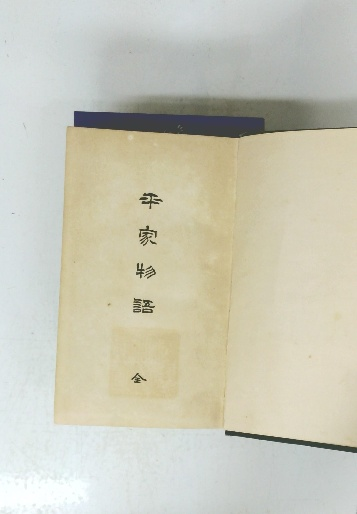 平家物語
全